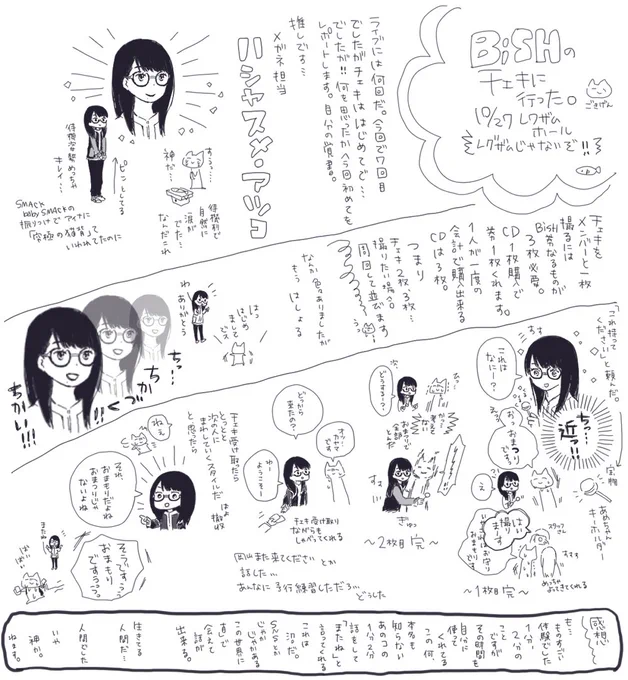 BiSHの
チェキに
行った。
10/27 レクザム
ホール
レグザムじゃないぞ!!
ごきげん
ライブには何回だ。今回で7回目
でしたがチェキははじめてで…
でしたが!! 何を思ったか今回初めてを
レポートします。自分の覚書。
推しです…
メガネ担当
ハシヤスメ・アツコ
する…
神だ…
待機列で
自然に
涙が
でた…
なんだこれ
ピンとしてる
待機姿勢めっちゃ
キレイ…
SMACK
baby SMACKの
振りつけでアイナに
「究極の猫背」って
いわれてたのに
チェキを
メンバーと一枚
撮るには
BiSH券なるものが
3枚必要。
CD1枚購入で
券1枚くれます。
1人が一度の
会計で購入出来る
CDは3枚。
つまり
チェキ2枚、3枚…
撮りたい場合。
周回して並びます
うっ
なんか色々ありましたが
もう はしょる
はっ
はじめ
まして
でス
わー
ありがとう
ちっ…
ちか
づく
ちかい!!!
「これ持って
ください」と頼んだ。
これは
なにー?
すす
おっおまもり
です
ちっ…
近っ!!
実物
あめちゃん
キーホルダー
え?
はい
撮り
ます
スタッフ
さん
すすす
めっちゃ
よってきてくれる
〜1枚目 完〜
どうする?
ぎゅっ
〜2枚目 完〜
どっから
きたの?
オッ…
オカヤマ
です
ようこそー
チェキ受け取り
ながらも
しゃべってくれる
チェキ受け取ったら
とっとと はよ
次の人に 撤収
まれしていくスタイルだ
と思ったら
ねえ
それ
おまもりだよね
おまつりじゃ
ないよね
そうですっっ
おまもり
ですうっっ
またね
ばいばい
岡山また来てください とか
話した…
あんなに予行練習しただろ…
どうした
感想
も…
ものすごい
体験でした
1分、
2分の
ことですが
その時間を
自分に
使って
くれてる
この何、
本名も
知らない
あのコの
1分2分
話をして
「またね」と
言ってくれる
これは
沼だ。
SNSとか
じゃかある
この世界に
直で
会えて
話が
出来る。
生きてる
人間だ…
人間でした
いや
神か。
ねます。